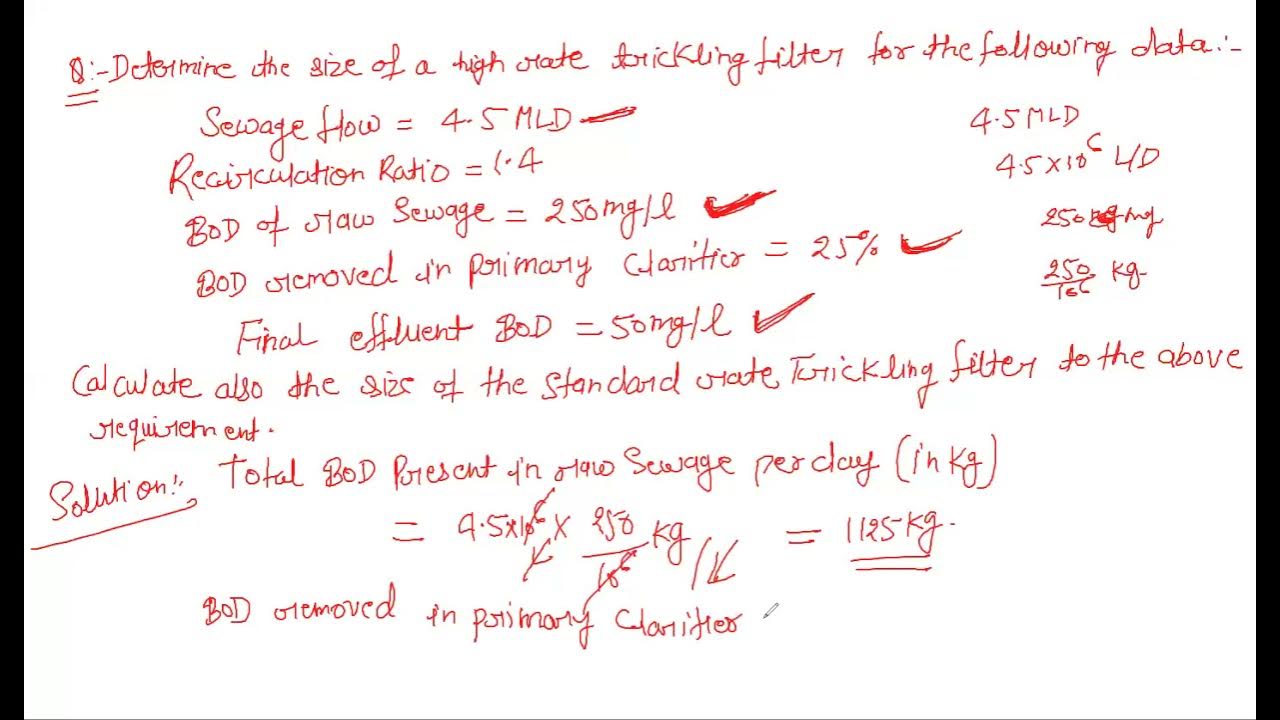 Q:- Determine the size of a high rate trickling filter for the following data:-
Sewage flow = 4.5 MLD
Recirculation Ratio = 1.4
BOD of raw Sewage = 250mg/l
BOD removed in primary Clarifier = 25%
Final effluent BOD = 50mg/l
4.5 MLD
4.5×10⁶ L/D
250 mg
250/10⁶ kg
Calculate also the size of the standard rate Trickling filter to the above
requirement.
Solution:- Total BOD Present in raw Sewage per day (in kg)
= 4.5×10⁶ × 250/10⁶ kg = 1125 kg.
BOD removed in primary Clarifier